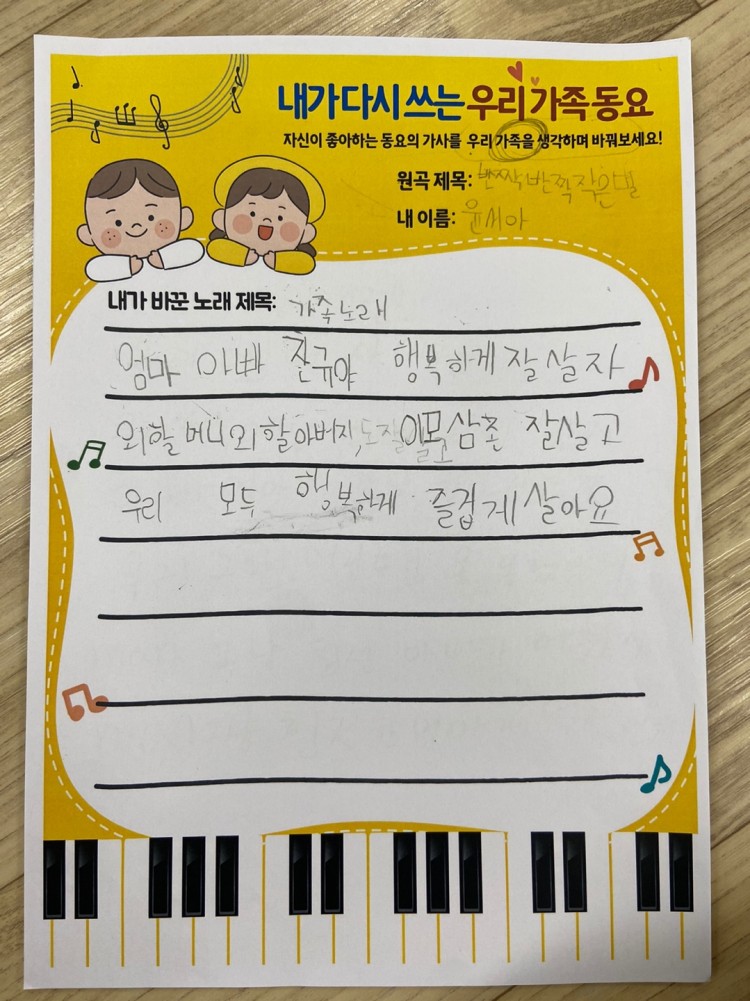 내가 다시 쓰는 우리 가족 동요
자신이 좋아하는 동요의 가사를 우리 가족을 생각하며 바꿔보세요!
원곡 제목: 반짝반짝작은별
내 이름: 윤서아
내가 바꾼 노래 제목: 가족노래
엄마 아빠 찬규야 행복하게 잘 살자
외할머니외할아버지, 이모삼촌 잘살고
우리 모두 행복하게 즐겁게 살아요